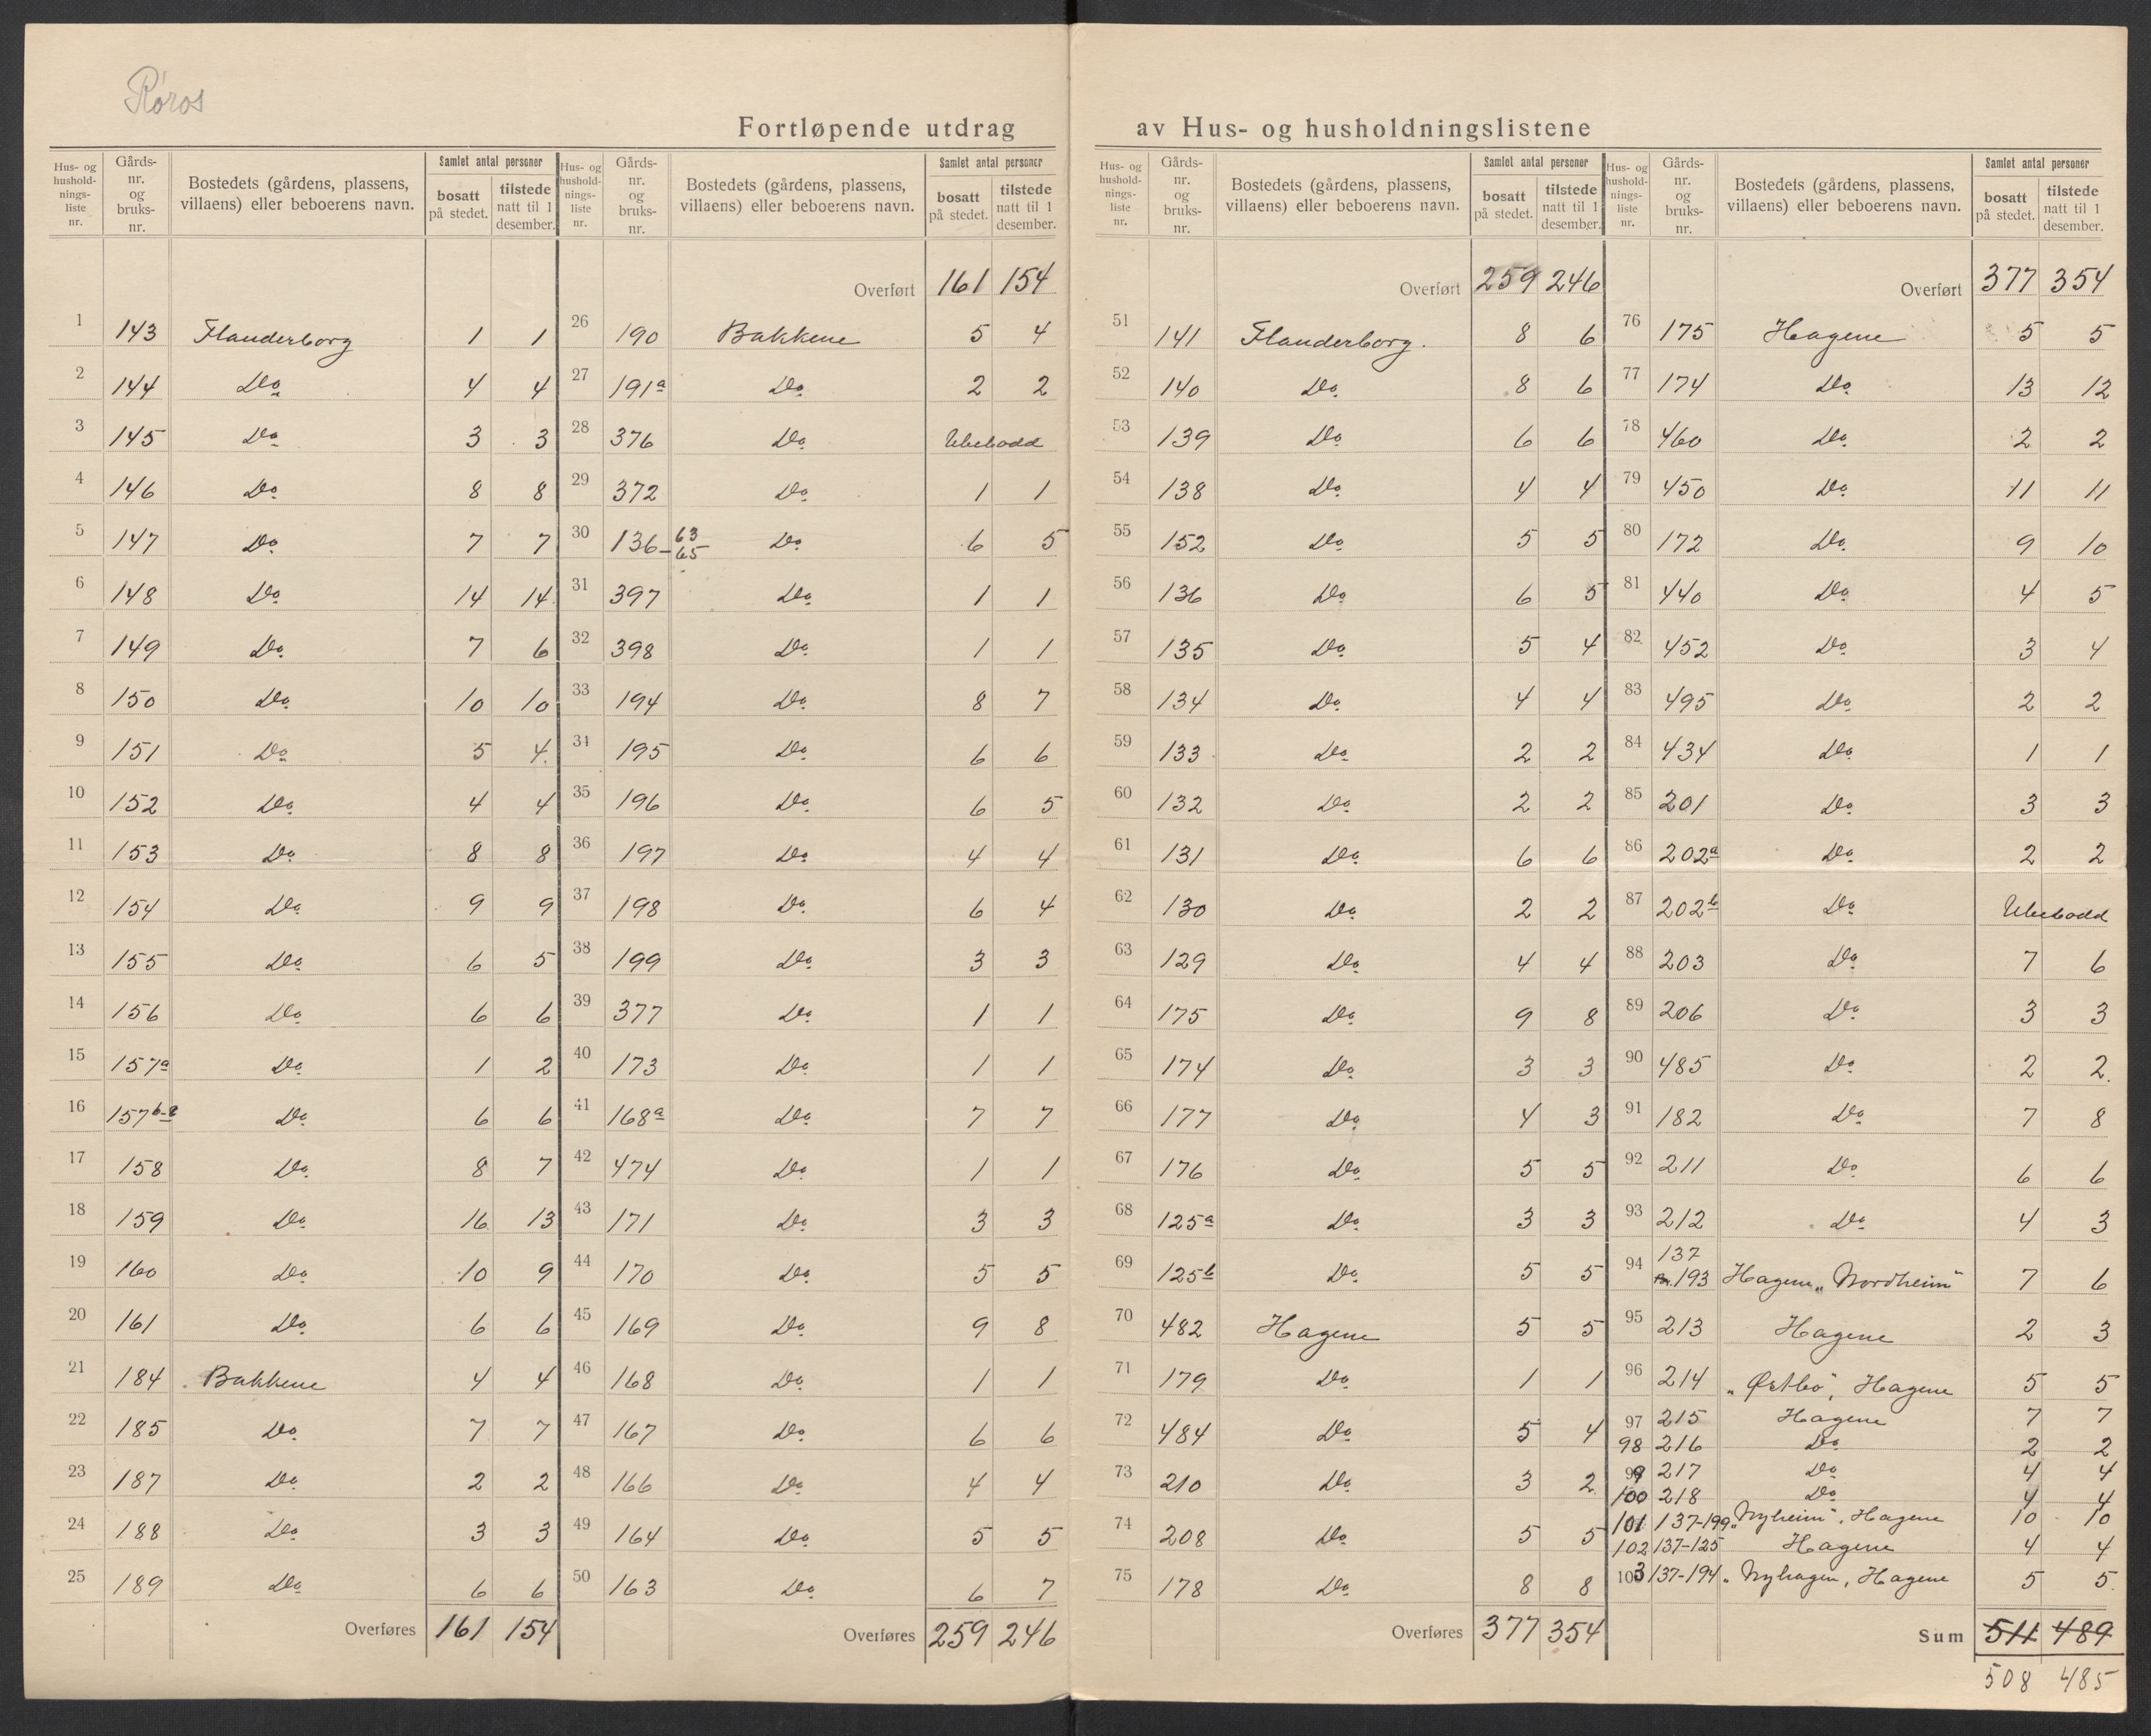 Røros
Fortløpende utdrag av Hus- og husholdningslistene
Hus- og husholdnings-liste nr. Gårds-nr. og bruks-nr. Bostedets (gårdens, plassens, villaens) eller beboerens navn. Samlet antal personer bosatt på stedet. tilstede natt til 1 desember.
1 143 Flanderborg 1 1
2 144 Do 4 4
3 145 Do 3 3
4 146 Do 8 8
5 147 Do 7 7
6 148 Do 14 14
7 149 Do 7 6
8 150 Do 10 10
9 151 Do 5 4
10 152 Do 4 4
11 153 Do 8 8
12 154 Do 9 9
13 155 Do 6 5
14 156 Do 6 6
15 157a Do 1 2
16 157b-c Do 6 6
17 158 Do 8 7
18 159 Do 16 13
19 160 Do 10 9
20 161 Do 6 6
21 184 Bakkene 4 4
22 185 Do 7 7
23 187 Do 2 2
24 188 Do 3 3
25 189 Do 6 6
Overføres 161 154
Hus- og husholdnings-liste nr. Gårds-nr. og bruks-nr. Bostedets (gårdens, plassens, villaens) eller beboerens navn. Samlet antal personer bosatt på stedet. tilstede natt til 1 desember.
Overført 161 154
26 190 Bakkene 5 4
27 191a Do 2 2
28 376 Do Ubebodd
29 372 Do 1 1
30 136-63 65 Do 6 5
31 397 Do 1 1
32 398 Do 1 1
33 194 Do 8 7
34 195 Do 6 6
35 196 Do 6 5
36 197 Do 4 4
37 198 Do 6 4
38 199 Do 3 3
39 377 Do 1 1
40 173 Do 1 1
41 168a Do 7 7
42 474 Do 1 1
43 171 Do 3 3
44 170 Do 5 5
45 169 Do 9 8
46 168 Do 1 1
47 167 Do 6 6
48 166 Do 4 4
49 164 Do 5 5
50 163 Do 6 7
Overføres 259 246
Hus- og husholdnings-liste nr. Gårds-nr. og bruks-nr. Bostedets (gårdens, plassens, villaens) eller beboerens navn. Samlet antal personer bosatt på stedet. tilstede natt til 1 desember.
Overført 259 246
51 141 Flanderborg. 8 6
52 140 Do 8 6
53 139 Do 6 6
54 138 Do 4 4
55 152 Do 5 5
56 136 Do 6 5
57 135 Do 5 4
58 134 Do 4 4
59 133 Do 2 2
60 132 Do 2 2
61 131 Do 6 6
62 130 Do 2 2
63 129 Do 4 4
64 175 Do 9 8
65 174 Do 3 3
66 177 Do 4 3
67 176 Do 5 5
68 125a Do 3 3
69 125b Do 5 5
70 482 Hagene 5 5
71 179 Do 1 1
72 484 Do 5 4
73 210 Do 3 2
74 208 Do 5 5
75 178 Do 8 8
Overføres 377 354
Hus- og husholdnings-liste nr. Gårds-nr. og bruks-nr. Bostedets (gårdens, plassens, villaens) eller beboerens navn. Samlet antal personer bosatt på stedet. tilstede natt til 1 desember.
Overført 377 354
76 175 Hagene 5 5
77 174 Do 13 12
78 460 Do 2 2
79 450 Do 11 11
80 172 Do 9 10
81 440 Do 4 5
82 452 Do 3 4
83 495 Do 2 2
84 434 Do 1 1
85 201 Do 3 3
86 202a Do 2 2
87 202b Do Ubebodd
88 203 Do 7 6
89 206 Do 3 3
90 485 Do 2 2.
91 182 Do 7 8
92 211 Do 6 6
93 212 Do 4 3
94 137 193 Hagene „Nordheim" 7 6
95 213 Hagene 2 3
96 214 „Østbo", Hagene 5 5
97 215 Hagene 7 7
98 216 Do 2 2
99 217 Do 4 4
100 218 Do 4 4
101 137-199 „Nyheim", Hagene 10 10
102 137-125 Hagene 4 4
103 137-194 „Nyhagen, Hagene 5 5.
Sum 511 489
508 485